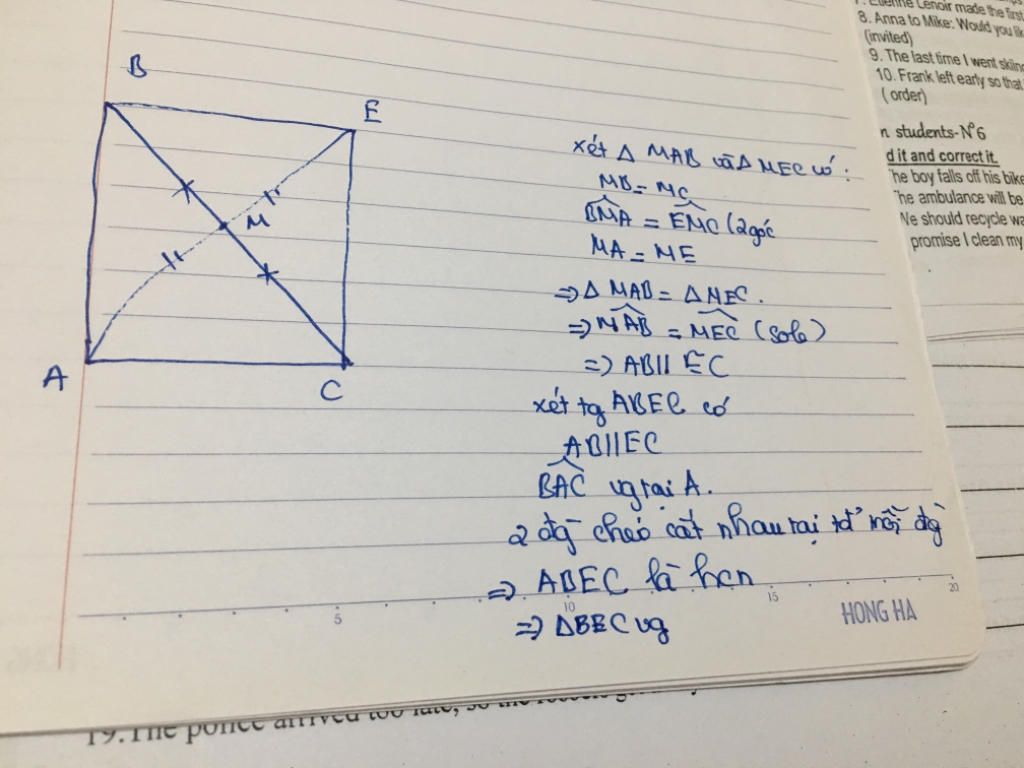 B
E
M
A
C
xét Δ MAB và Δ MEC có:
MB = MC
BMA = EMC (2 góc
MA = ME
=> Δ MAB = Δ MEC.
=> MAB = MEC (sole)
=> AB // EC
xét tg ABEC có
AB // EC
BAC vg tại A.
2 đg chéo cắt nhau tại tđ mỗi đg
=> ABEC là hcn
=> ΔBEC vg
5
10
15
20
HONG HA
7. Etienne Lenoir made the first
8. Anna to Mike: Would you lik
(invited)
9. The last time I went skiing
10. Frank left early so that
( order)
n students-Nº6
d it and correct it.
The boy falls off his bike
The ambulance will be
We should recycle wa
promise I clean my
19.The police arrived too late, so the